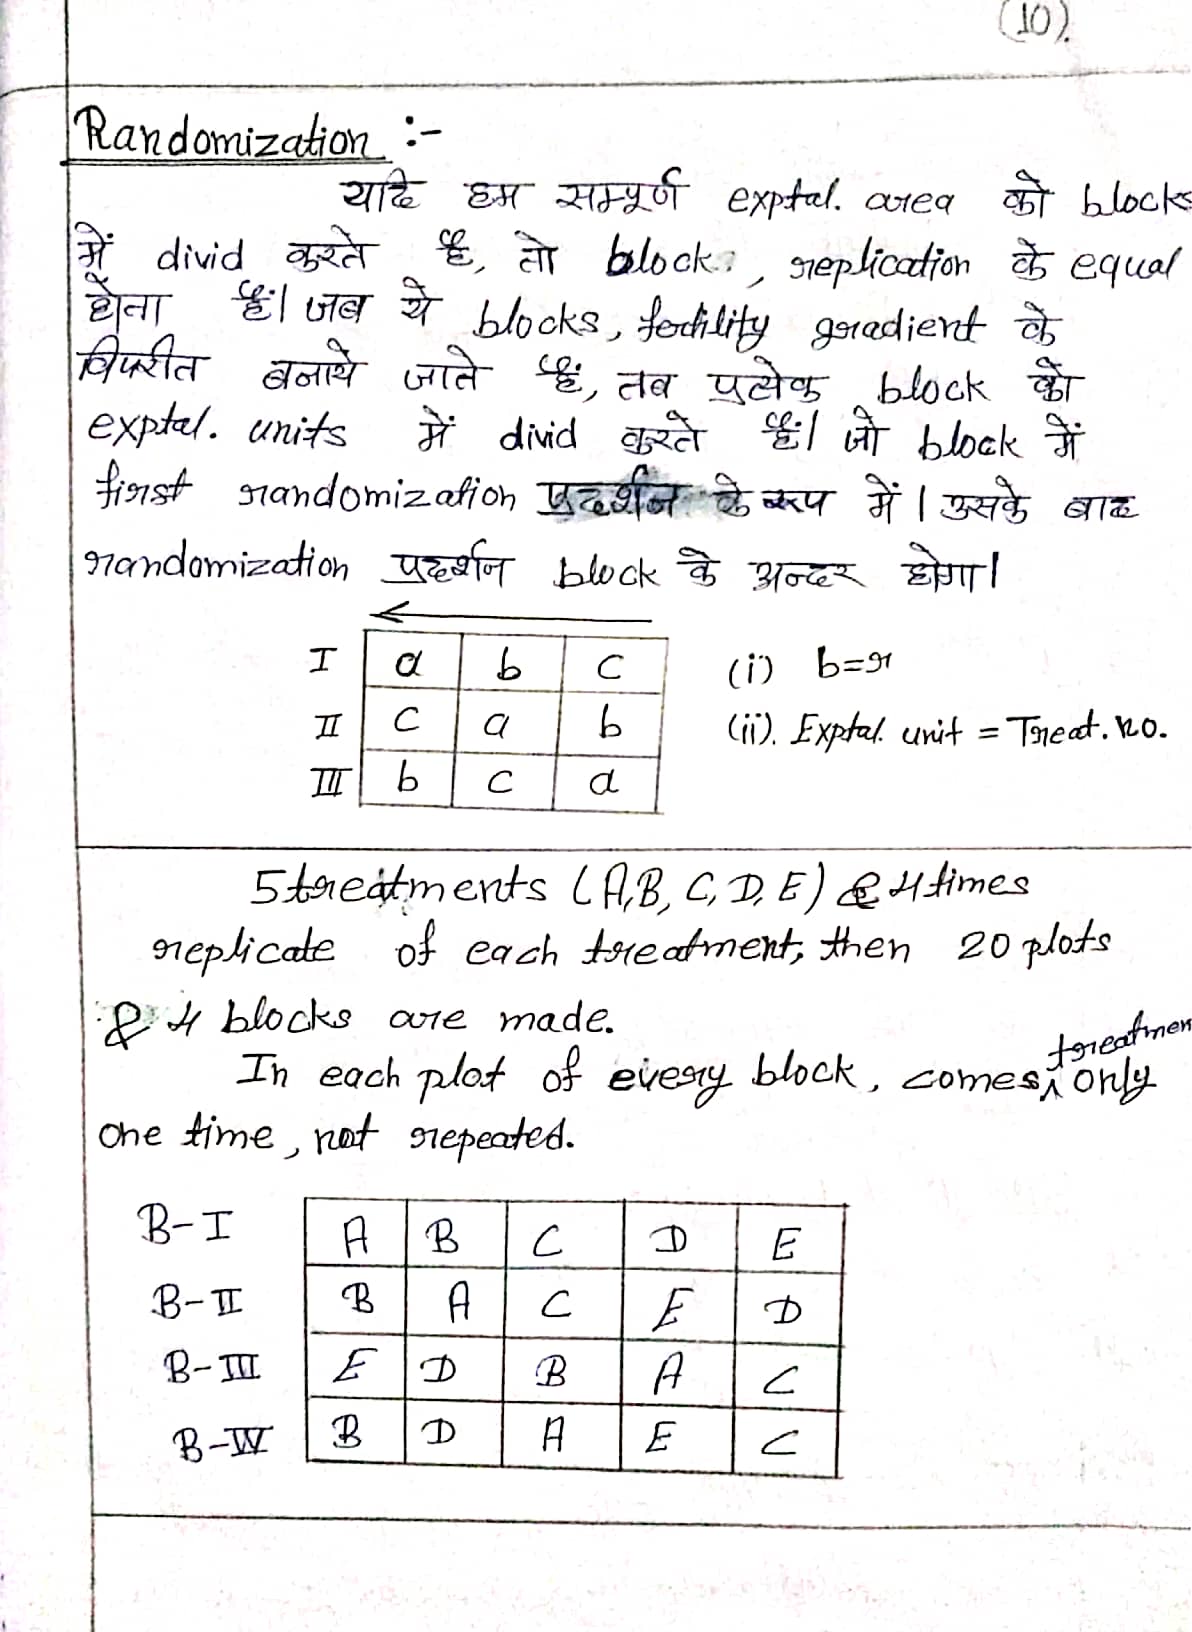 (10).
Randomization :-
यदि हम सम्पूर्ण exptal. area को blocks
में divid करते है, तो block, replication के equal
होता हैं। जब ये blocks, fertility gradient के
विपरीत बनाये जाते हैं, तब प्रत्येक block को
exptal. units में divid करते हैं। जो block में
first randomization प्रदर्शन के रूप में। उसके बाद
randomization प्रदर्शन block के अन्दर होगा।
I a b c (i) b=r
II c a b (ii). Exptal. unit = Treat. no.
III b c a
5 treatments (A, B, C, D, E) & 4 times
replicate of each treatment, then 20 plots
& 4 blocks are made.
In each plot of every block, comes treatmen only
one time, not repeated.
B-I A B C D E
B-II B A C E D
B-III E D B A C
B-IV B D A E C